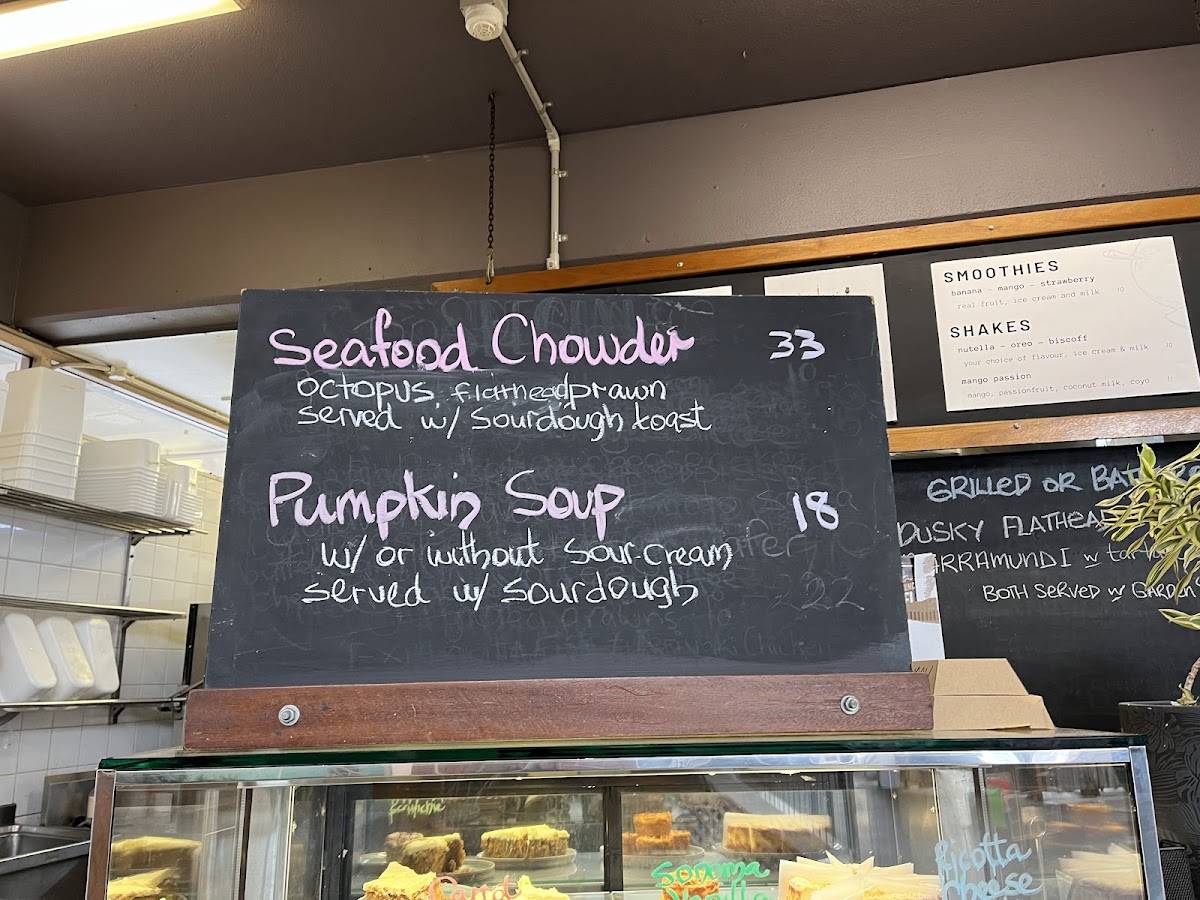 Seafood Chowder 33
octopus, flathead, prawn
served w/ sourdough toast
Pumpkin Soup 18
w/ or without sour cream
served w/ sourdough
SMOOTHIES
banana - mango - strawberry
real fruit, ice cream and milk 10
SHAKES
nutella - oreo - biscoff
your choice of flavour, ice cream & milk 10
mango passion
mango, passionfruit, coconut milk, coyo 11
GRILLED OR
DUSKY
w
BOTH SERVED w
Carrot
Sonoma
Vanilla
Ricotta
cheese